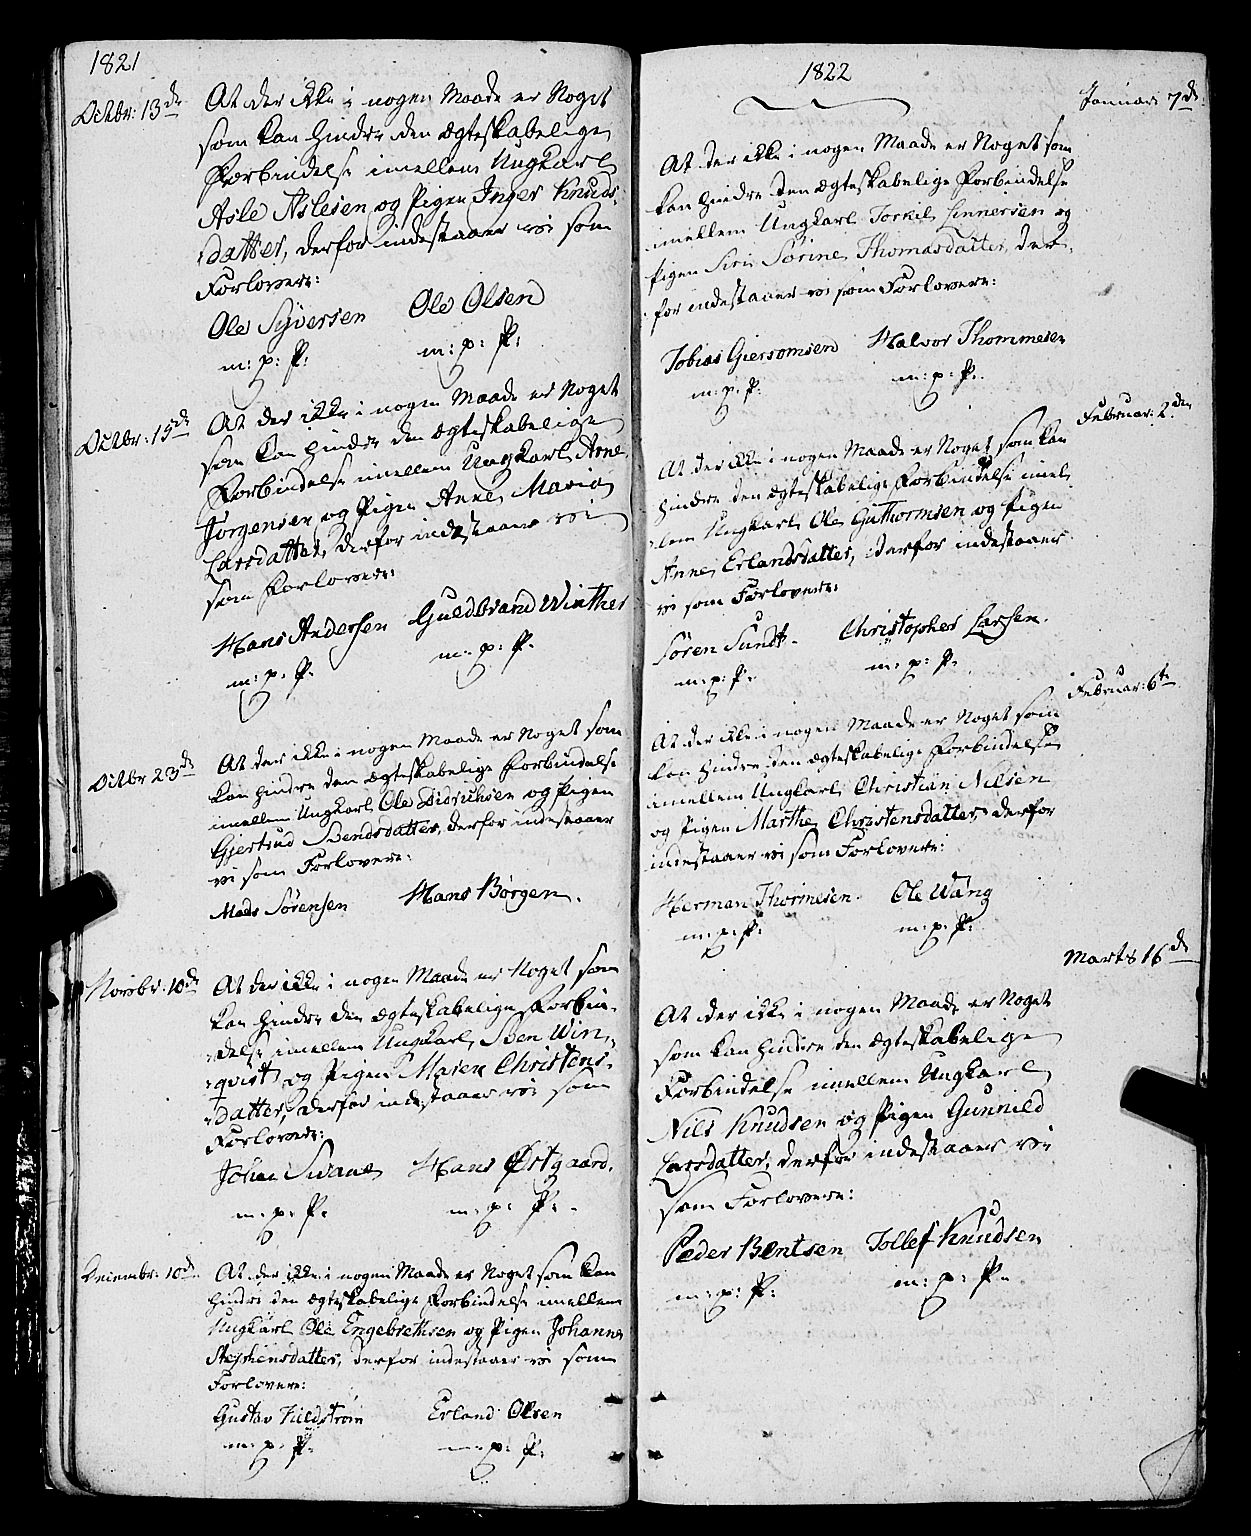 1821
Octbr: 13de
At der ikke i nogen Maade er Noget
som kan hindre den ægteskabelige
Forbindelse imellem Ungkarl
Asle Aslesen og Pigen Inger Knuds-
datter, derfor indestaaer vi som
Forlovere:
Ole Syversen Ole Olsen
m: p: P: m: p: P:
Octbr: 15de
At der ikke i nogen Maade er Noget
som kan hindre den ægteskabelige
Forbindelse imellem Ungkarl Arne
Jörgensen og Pigen Anne Maria
Larsdatter, derfor indestaaer vi
som Forlovere:
Hans Andersen Guldbrand Winther
m: p: P: m: p: P:
Octbr 23de
At der ikke i nogen Maade er Noget som
kan hindre den ægteskabelige Forbindelse
imellem Ungkarl Ole Didrichsen og Pigen
Gjertrud Svendsdatter, derfor indestaaer
vi som Forlovere:
Mads Sörensen Hans Börgen.
Novbr: 10de
At der ikke i nogen Maade er Noget som
kan hindre den ægteskabelige Forbin-
delse imellem Ungkarl Sven Win-
qvist og Pigen Maren Christens-
datter, derfor indestaaer vi som
Forlovere:
Johan Svane Hans Østgaard.
m: p: P: m: p: P:
Decembr: 10de
At der ikke i nogen Maade er Noget som kan
hindre den ægteskabelige Forbindelse imellem
Ungkarl Ole Engebrethsen og Pigen Johanne
Stephensdatter, derfor indestaaer vi som
Forlovere:
Gustav Erland Olsen
m: p: P: m: p: P:
1822
Januar 7de
At der ikke i nogen Maade er Noget som
kan hindre den ægteskabelige Forbindelse
imellem Ungkarl Torkil Linnersen og
Pigen Siri Sörine Thomasdatter, der-
for indestaaer vi som Forlovere:
Tobias Giersomsen Halvor Thommesen
m: p: P: m: p: P:
Februar: 2den
At der ikke i nogen Maade er Noget som kan
hindre den ægteskabelige Forbindelse imel-
lem Ungkarl Ole Guthormsen og Pigen
Anne Erlandsdatter, derfor indestaaer
vi som Forlovere:
Sören Sundt. Christopher Larsen.
m: p: P: m: p: P:
Februar: 6te
At der ikke i nogen Maade er Noget som
kan hindre den ægteskabelige Forbindelse
imellem Ungkarl Christian Nilsen
og Pigen Marthe Christensdatter, derfor
indestaaer vi som Forlovere:
Herman Thormesen. Ole Wang
m: p: P: m: p: P:
Marts 16de
At der ikke i nogen Maade er Noget
som kan hindre den ægteskabelige
Forbindelse imellem Ungkarl
Nils Knudsen og Pigen Gunnild
Larsdatter, derfor indestaaer vi
som Forlovere:
Peder Bentsen Tollef Knudsen
m: p: P: m: p: P: